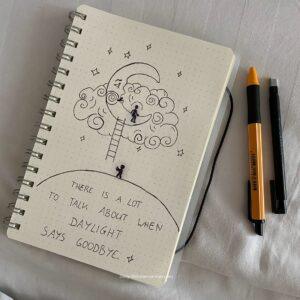 THERE IS A LOT
TO TALK ABOUT WHEN
DAYLIGHT
SAYS GOODBYE.